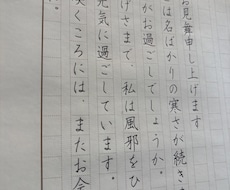 お見舞申し上げます
は名ばかりの寒さが続きま
がお過ごしでしょうか。
げさまで、私は風邪をひ
元気に過ごしています。
咲くころには、またお会
。